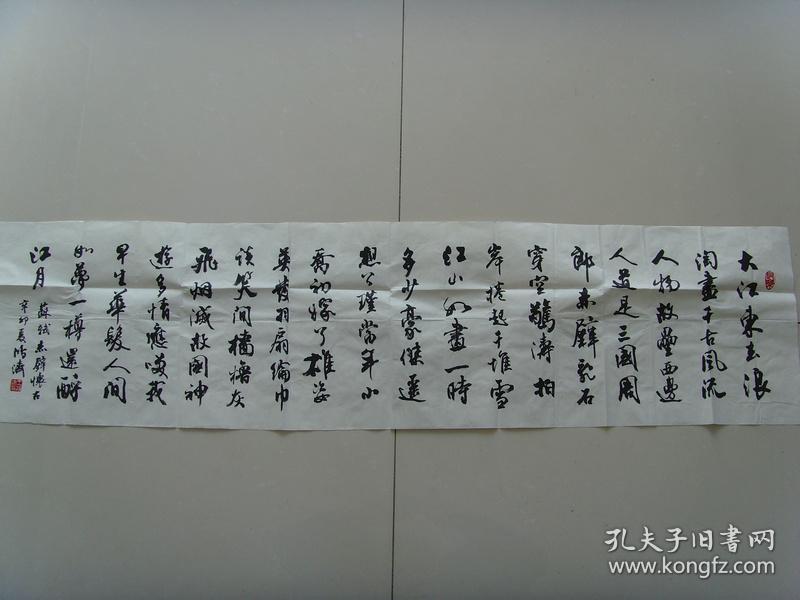 大江東去浪
淘盡千古風流
人物故壘西邊
人道是三國周
郎赤壁亂石
穿空驚濤拍
岸捲起千堆雪
江山如畫一時
多少豪傑遥
想公瑾當年小
喬初嫁了雄姿
英發羽扇綸巾
談笑間檣櫓灰
飛烟滅故國神
遊多情應笑我
早生華髮人間
如夢一樽還酹
江月
蘇軾赤壁懷古
辛卯
孔夫子旧書网
www.kongfz.com